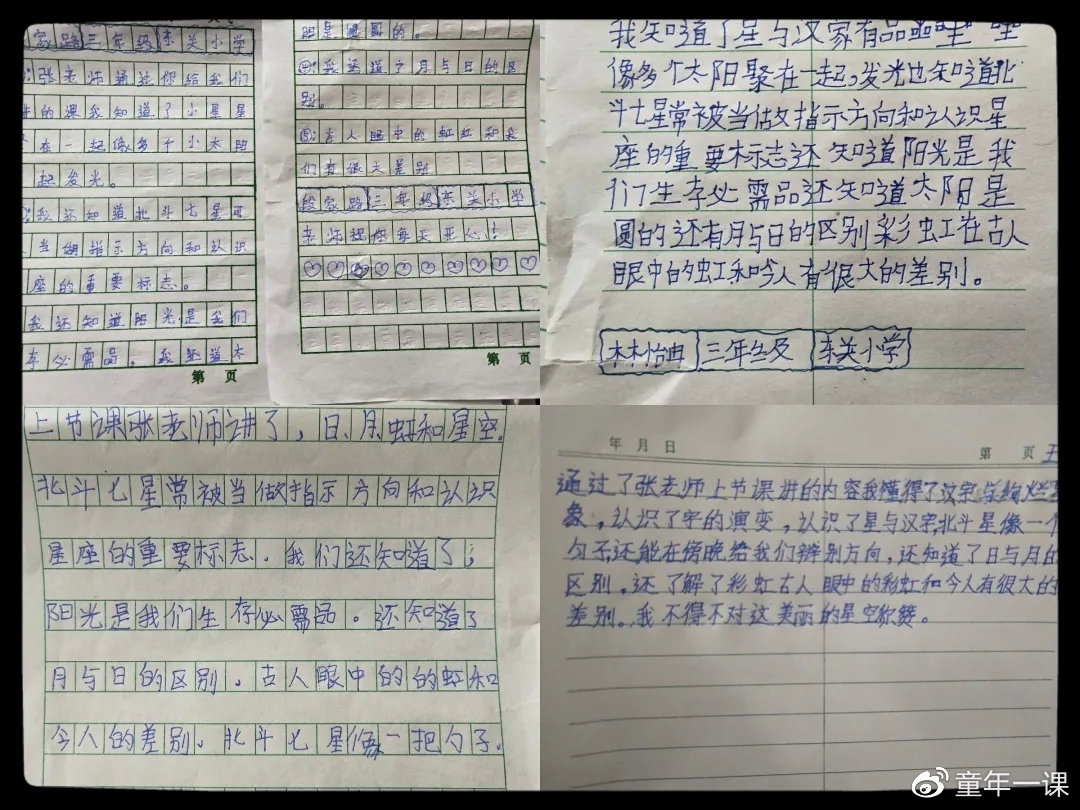 家路三年级东关小学
张老师通过你给我们
的课我知道了小星星
在一起像多个小太阳
起发光。
我还知道北斗七星可
当做指示方向和认识
座的重要标志。
我还知道阳光是我们
必需品。我知道太
第 页
阳是圆的。
④:我还道了月与日的区
别。
⑤:古人眼中的虹和我
们有很大差别
段家路三年级东关小学
老师祝你每天开心!
第 页
我知道了星与汉字有品
像多个太阳聚在一起,发光也知道北
斗七星常被当做指示方向和认识星
座的重要标志还知道阳光是我
们生李必需品还知道太阳是
圆的还有月与日的区别彩虹在古人
眼中的虹和今人有很大的差别。
林怡冉 三年级 东关小学
上节课张老师讲了,日、月、虹和星空。
北斗七星常被当做指示方向和认识
星座的重要标志。我们还知道了;
阳光是我们生存必需品。还知道了
月与日的区别。古人眼中的的虹和
今人的差别。北斗七星像一把勺子。
年 月 日
第 页
通过了张老师上节课讲的内容我懂得了汉字
象,认识了字的演变,认识了星与汉字,北斗星像一个
勺子还能在傍晚给我们辨别方向,还知道了日与月的
区别,还了解了彩虹古人眼中的彩虹和今人有很大的
差别。我不得不对这美丽的星空称赞。
童年一课